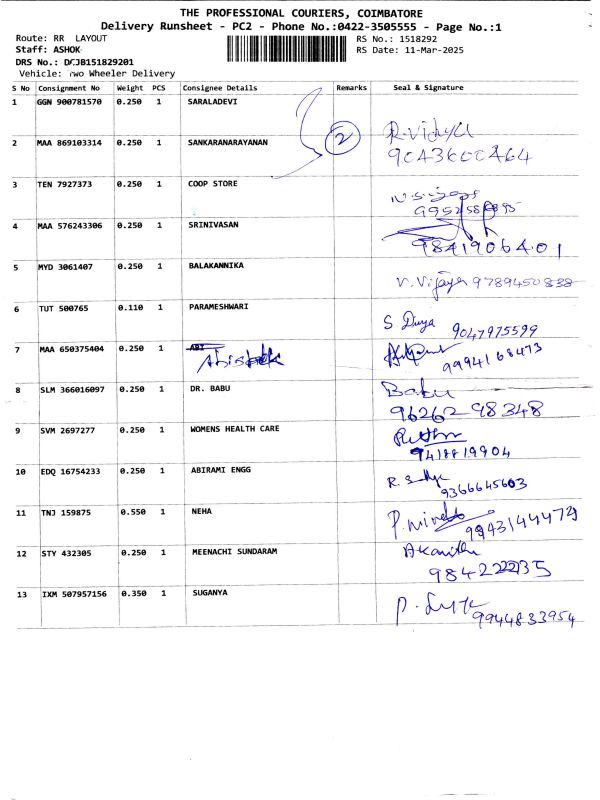 THE PROFESSIONAL COURIERS, COIMBATORE
Delivery Runsheet - PC2 - Phone No.:0422-3505555 - Page No.:1
Route: RR LAYOUT RS No.: 1518292
Staff: ASHOK RS Date: 11-Mar-2025
DRS No.: DCJB151829201
Vehicle: Two Wheeler Delivery
S No Consignment No Weight PCS Consignee Details Remarks Seal & Signature
1 GGN 900781570 0.250 1 SARALADEVI
2 MAA 869103314 0.250 1 SANKARANARAYANAN 2 R.Vidya
9043600464
3 TEN 7927373 0.250 1 COOP STORE
4 MAA 576243306 0.250 1 SRINIVASAN
9841906401
5 MYD 3061407 0.250 1 BALAKANNIKA V. Vijaya 9789450838
6 TUT 500765 0.110 1 PARAMESHWARI S Divya
9047975599
7 MAA 650375404 0.250 1 ABI
9994168473
8 SLM 366016097 0.250 1 DR. BABU Babu
9626298348
9 SVM 2697277 0.250 1 WOMENS HEALTH CARE
9418819904
10 EDQ 16754233 0.250 1 ABIRAMI ENGG
9366645603
11 TNJ 159875 0.550 1 NEHA
9943144479
12 STY 432305 0.250 1 MEENACHI SUNDARAM
13 IXM 507957156 0.350 1 SUGANYA
9944833954